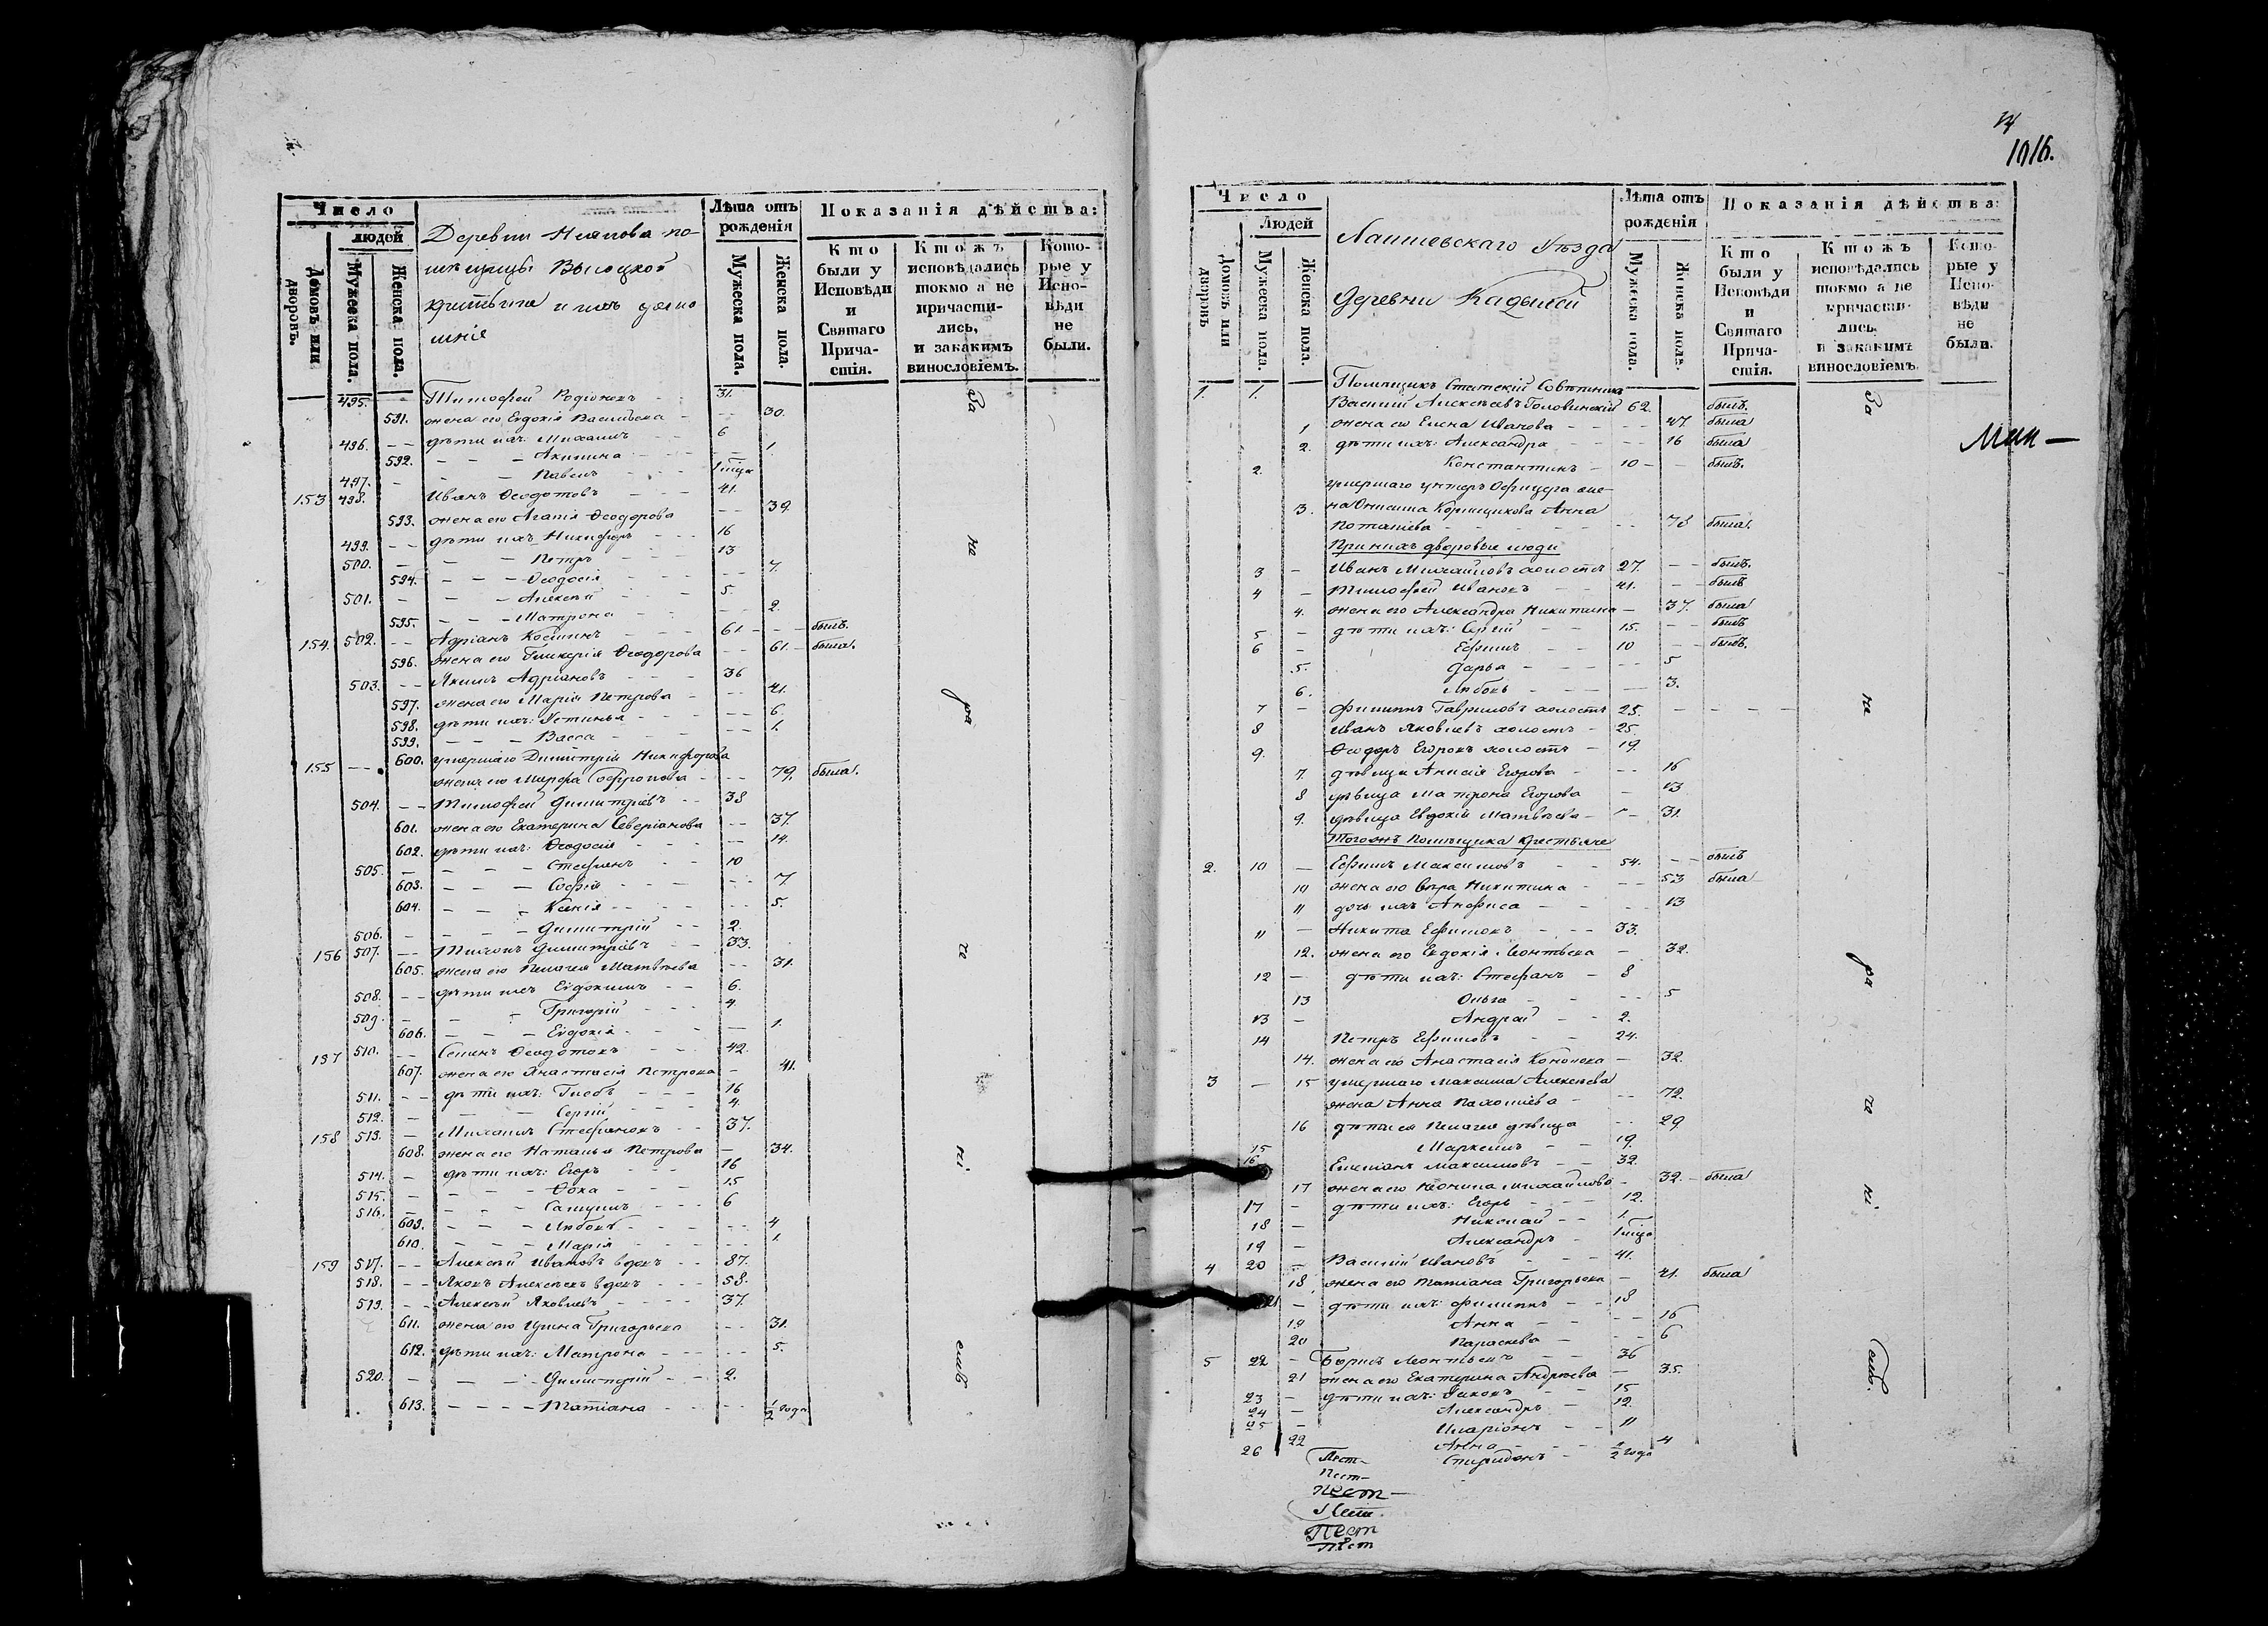 Число
людей
Домовъ или дворовъ.
Мужеска пола.
Женска пола.
Деревни по-
мѣщицы Высоцкой
Лѣта отъ рожденія
Мужеска пола.
Женска пола.
Показанія дѣйства:
Кто были у Исповѣди и Святаго Прича-стія.
Ктожъ исповѣдались токмо а не причасти-лись, и закакимъ винословіемъ.
Кото-рые у Испо-вѣди не были.
495. Тимофей Родіоновъ 31.
591. жена его Евдокія Васильева 30.
496. дѣти ихъ: Михаилъ 6
592. Акилина 1.
497. Павелъ 1 мѣца
153 498. Иванъ Ѳеодотовъ 41.
593. жена его Агапія Ѳеодорова 39.
499. дѣти ихъ Никифоръ 16
500. Петръ 13
594. Ѳеодосія 7.
501. Алексѣй 5.
595. Матрона 2.
154. 502. Адріанъ Косминъ 61. былъ.
596. жена его Гликерія Ѳеодорова 61. была.
503. Якимъ Адріановъ 36
597. жена его Марія Петрова 41.
598. дѣти ихъ: Устинья 6
599. Васса 1.
155 600. умершаго Димитрія Никифорова
жена его Марфа Софронова 79. была.
504. Тимофей Димитріевъ 38
601. жена его Екатерина Северіанова 37.
602. дѣти ихъ: Ѳеодосія 14.
505. Стефанъ 10
603. Софія 7.
604. Ксенія 5.
506. Димитрій 2.
156 507. Тихонъ Димитріевъ 33.
605. жена его Пелагея Матвѣева 31.
508. дѣти ихъ Евдокимъ 6.
509. Григорій 4.
606. Евдокія 1.
157 510. Семенъ Ѳеодотовъ 42.
607. жена его Анастасія Петрова 41.
511. дѣти ихъ: Глебъ 16
512. Сергій 4.
158 513. Михаилъ Стефановъ 37.
608. жена его Наталья Петрова 34.
514. дѣти ихъ: Егоръ 16
515. Ѳока 15
516. Самуилъ 6
609. Любовь 4
610. Марія 1.
159 517. Алексѣй Ивановъ вдовъ 87.
518. Яковъ Алексѣевъ вдовъ 58.
519. Алексѣй Яковлевъ 37.
611. жена его Ирина Григорьева 31.
612. дѣти ихъ: Матрона 5.
520. Димитрій 2.
613. Татіана 1/2 года
За
не
ра
че
ні
емъ
1016.
Число
Людей
Домовъ или дворовъ
Мужеска пола.
Женска пола.
Лаишевскаго Уѣзда
Деревни Кадышей
Лѣта отъ рожденія
Мужеска пола.
Женска пола.
Показанія дѣйства:
Кто были у Исповѣди и Святаго Прича-стія.
Ктожъ исповѣдались токмо а не причасти-лись, и закакимъ винословіемъ.
Кото-рые у Испо-вѣди не были.
1. 1. Помѣщикъ Статскій Совѣтникъ
Василій Алексѣевъ Головинскій 62. былъ.
1 жена его Елена Иванова 47. была
2. дѣти ихъ: Александра 16 была
2. Константинъ 10 былъ.
умершаго унтеръ Офицера же-
3. на Онисима Анна
Потапіева была.
При нихъ дворовые люди
3 Иванъ Михайловъ холостъ 27. былъ.
4 Тимофей Ивановъ 41. былъ
4. жена его Александра Никитина 37. была
5 дѣти ихъ: Сергій 15. былъ
6 Ефимъ 10 былъ.
5. Дарья 5
6. Любовь 3.
7 Филиппъ Гавриловъ холостъ 25.
8 Иванъ Яковлевъ холостъ 25.
9. Ѳеодоръ Егоровъ холостъ 19.
7. дѣвица Анисія Егорова 16
8 дѣвица Матрона Егорова 13
9. дѣвица Евдокія Матвѣева 31.
Тогожъ помѣщика крестьяне
2. 10 Ефимъ Максимовъ 54. былъ
10 жена его Вѣра Никитина 53 была
11 дочь ихъ Анфиса 13
11 Никита Ефимовъ 33.
12. жена его Евдокія Леонтьева 32.
12 дѣти ихъ: Стефанъ 8
13 Ольга 5
13 Андрей 2.
14 Петръ Ефимовъ 24.
14. жена его Анастасія Кононова 32.
3 15 умершаго Максима Алексѣева
жена Анна Пахоміева 72.
16 дѣти ея Пелагея дѣвица 29.
15 Маркеллъ 19.
16 Емеліанъ Максимовъ 32.
17 жена его Михайлова 32. была
17 дѣти ихъ: Егоръ 12.
18 Николай 1.
19 Александръ 1 мѣца
4 20 Василій Ивановъ 41.
18 жена его Татіана Григорьева 41. была
21 дѣти ихъ: Филиппъ 18
19 Анна 16
20 Параскева 6
5 22 Борисъ Леонтьевъ 36
21 жена его Екатерина Андреева 35.
23 дѣти ихъ: Яковъ 15
24 Александръ 12.
25 Иларіонъ 11
22 Анна 4
26 Спиридонъ 1/2 года
За
не
ра
че
ні
емъ.
Пест-
Пест-
Пест-
Пест
Пест